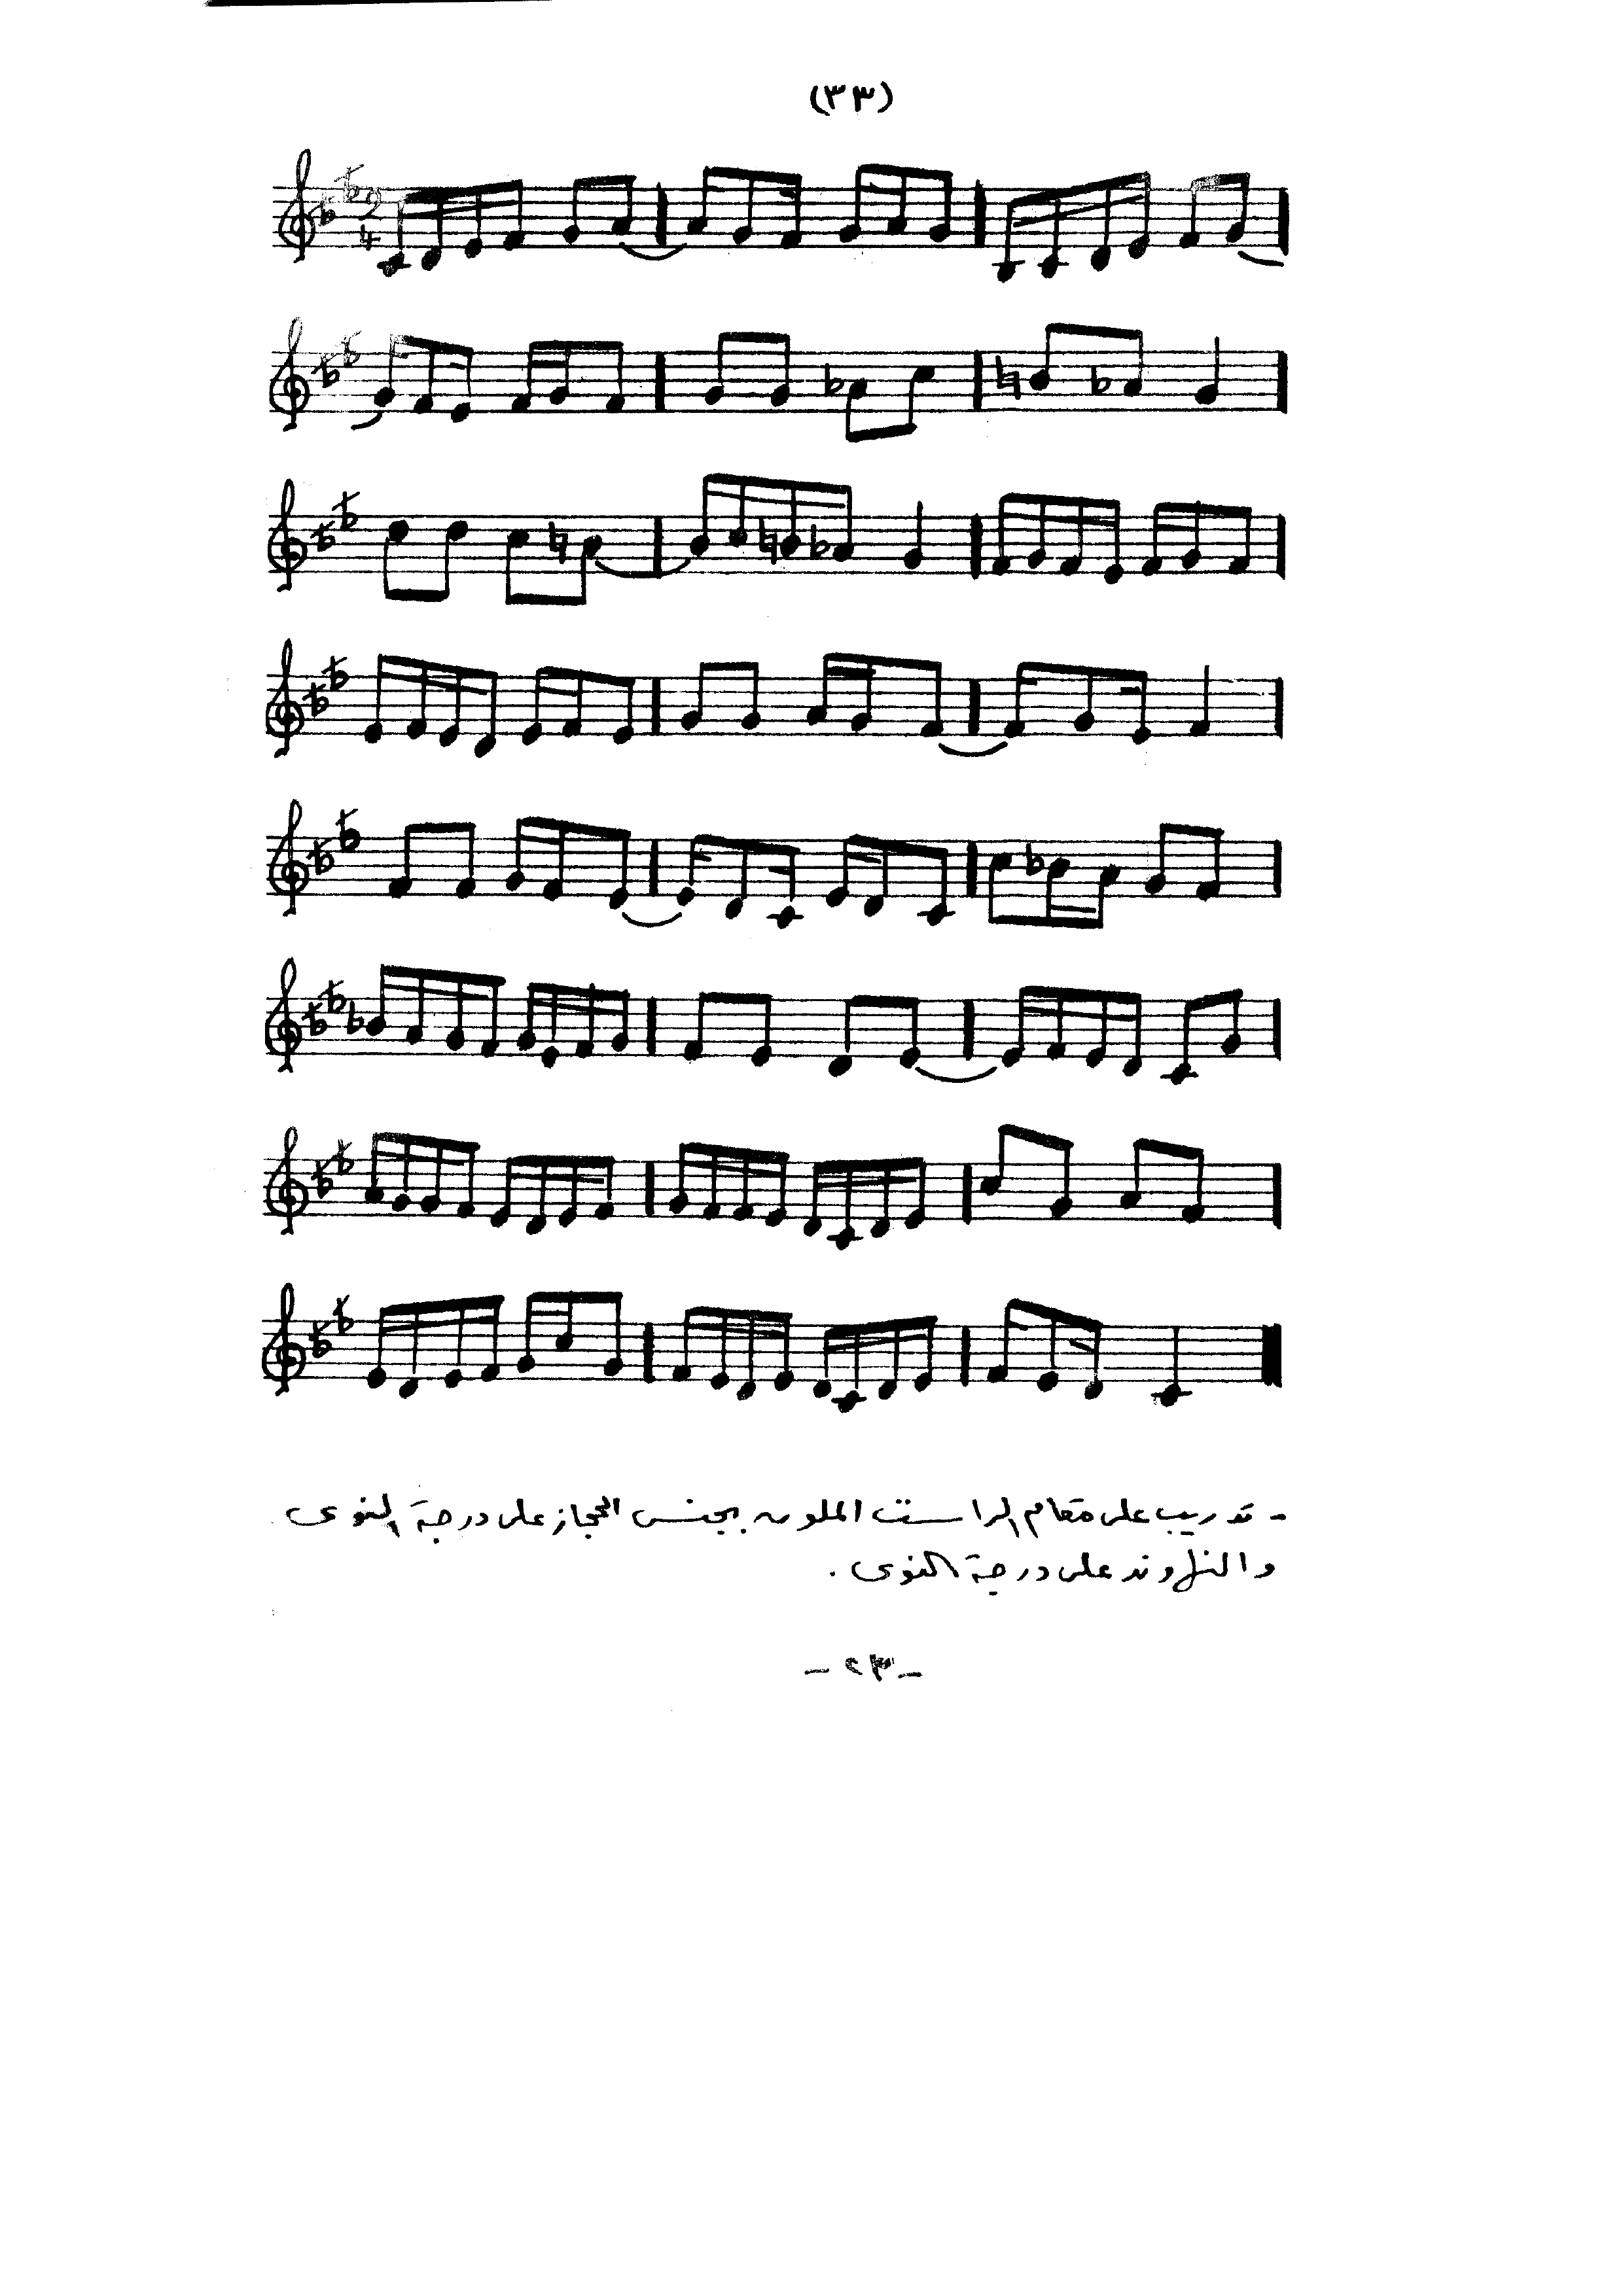 (٣٣)
٢
٤
- تدريب على مقام الراست الملون بجنس الحجاز على درجة النوى
والنهاوند على درجة النوى .
- ٢٣ -